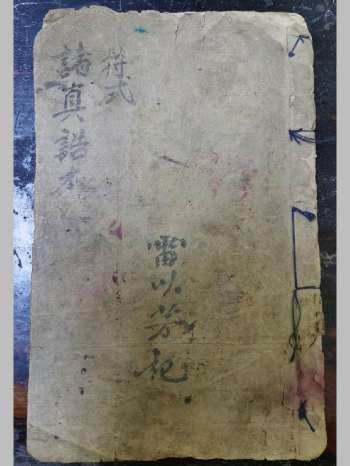 雷以芳記
符式
諸真誥本